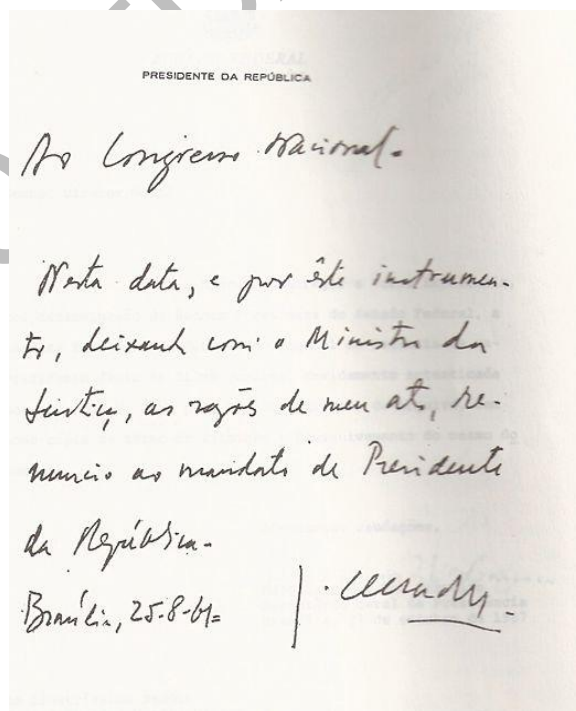 PRESIDENTE DA REPÚBLICA
Ao Congresso Nacional.
Nesta data, e por êste instrumen-
to, deixando com o Ministro da
Justiça, as razões de meu ato, re-
nuncio ao mandato de Presidente
da República.
Brasília, 25-8-61=
J. Quadros.